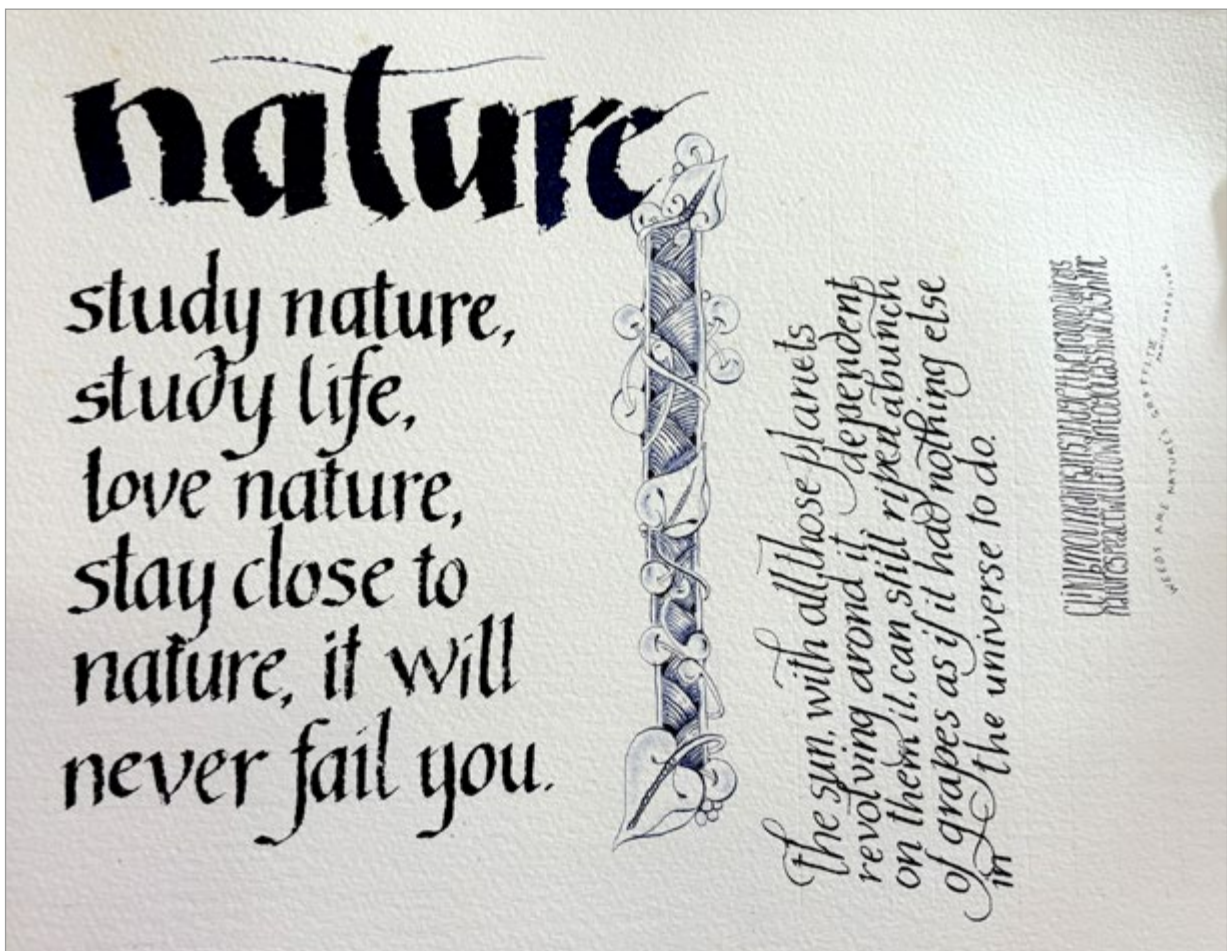 nature
study nature,
study life,
love nature,
stay close to
nature, it will
never fail you.
The sun, with all those planets
revolving arond it dependent
on them it, can still ripen a bunch
of grapes as if it had nothing else
in the universe to do.
WEEDS ARE NATURE'S GRAFFITI